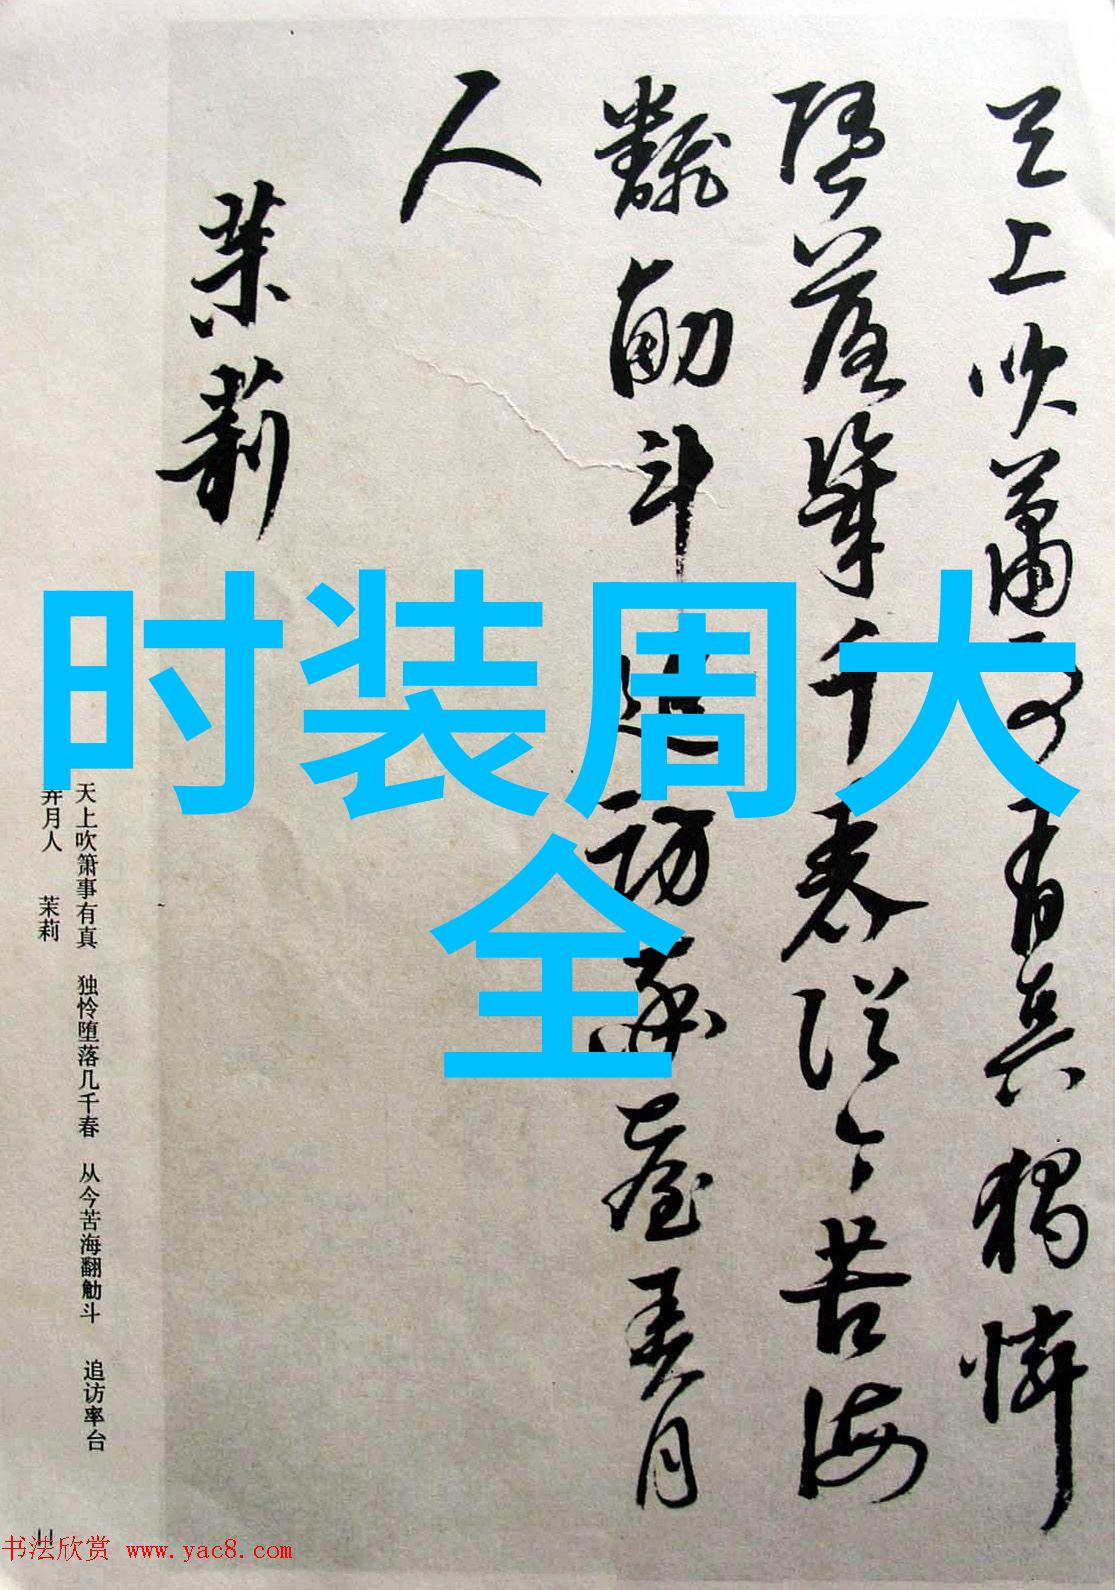 天上吹蕭事有真獨憐
墮落幾千春從今苦海
翻觔斗追訪臺弄月
人
茉莉
时装周大
全
天上吹箫事有真 独怜堕落几千春 从今苦海翻觔斗 追访率台
弄月人 茉莉
11
书法欣赏 www.yac8.com